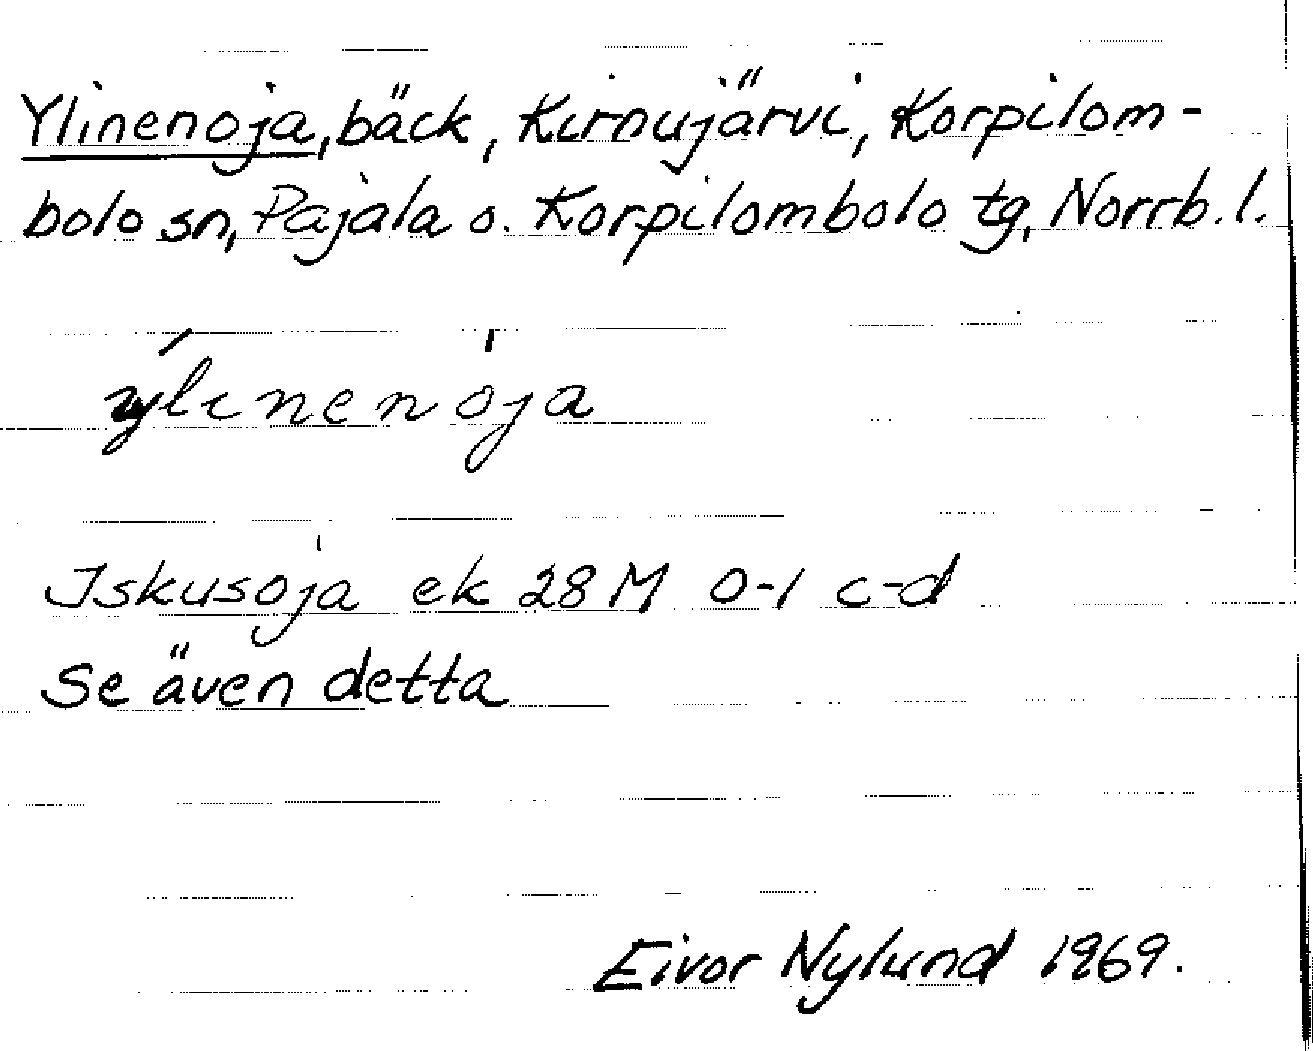 Ylinenoja, bäck, Kirnujärvi, Korpilom-
bolo sn, Pajala o. Korpilombolo tg, Norrb. l.
ýlinenòja
Iskusoja ek 28 M 0-1 c-d
Se även detta
Eivor Nylund 1969.